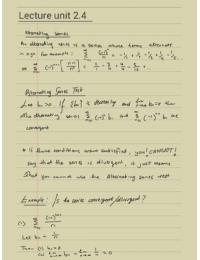 Lecture unit 2.4
Alternating Series
An alternating series is a series whose terms alternate
in sign. For example:
Alternating Series Test
Let bₙ > 0. If {bₙ} is decreasing and lim bₙ = 0 then
the alternating series Σ (-1)ⁿ bₙ and Σ (-1)ⁿ⁺¹ bₙ are
convergent
* If these conditions are not satisfied, you CANNOT!
say that the series is divergent, it just means
that you cannot use the alternating series test
Example: Is the series convergent/divergent?
(1)
Let bₙ = 1/n
Then (i) bₙ > 0
(ii) lim bₙ = lim 1/n = 0